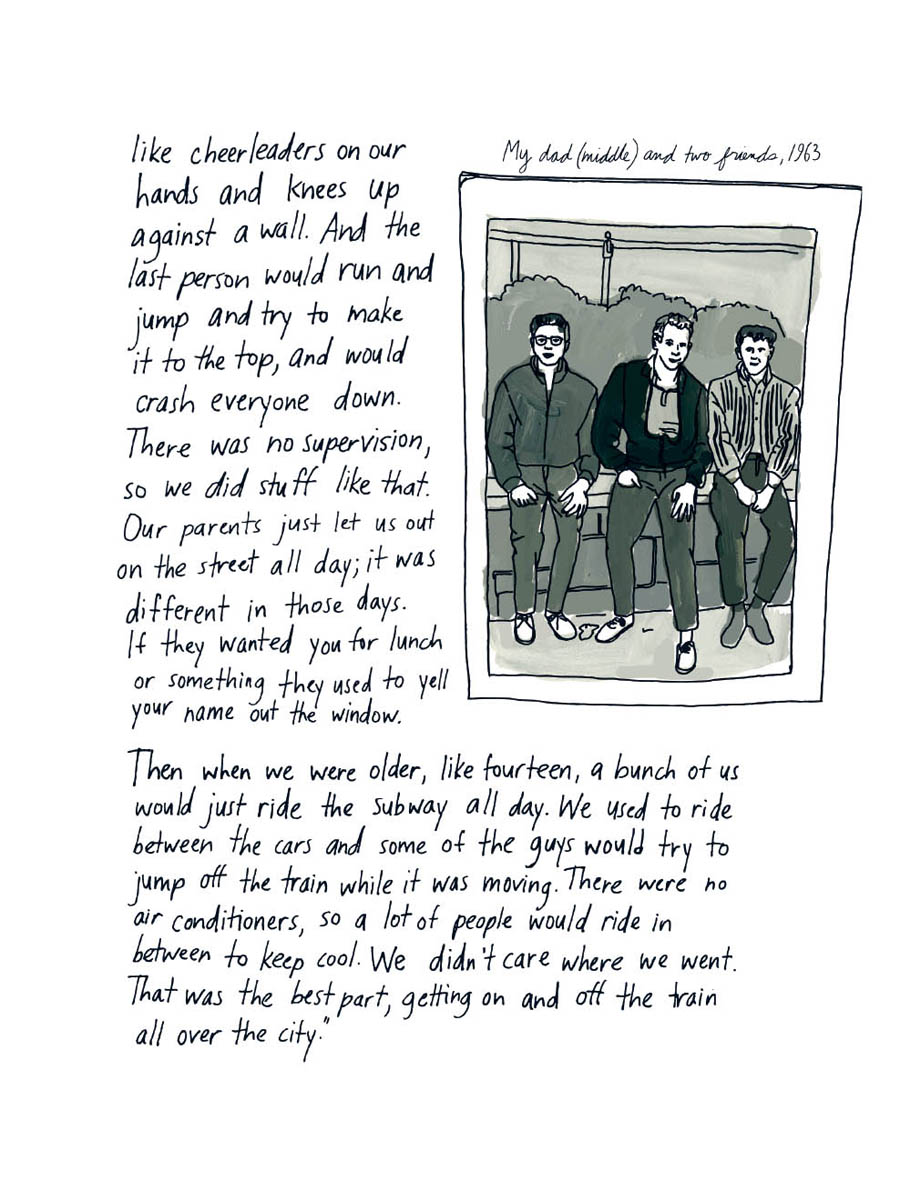 My dad (middle) and two friends, 1963
like cheerleaders on our
hands and knees up
against a wall. And the
last person would run and
jump and try to make
it to the top, and would
crash everyone down.
There was no supervision,
so we did stuff like that.
Our parents just let us out
on the street all day; it was
different in those days.
If they wanted you for lunch
or something they used to yell
your name out the window.
Then when we were older, like fourteen, a bunch of us
would just ride the subway all day. We used to ride
between the cars and some of the guys would try to
jump off the train while it was moving. There were no
air conditioners, so a lot of people would ride in
between to keep cool. We didn't care where we went.
That was the best part, getting on and off the train
all over the city."